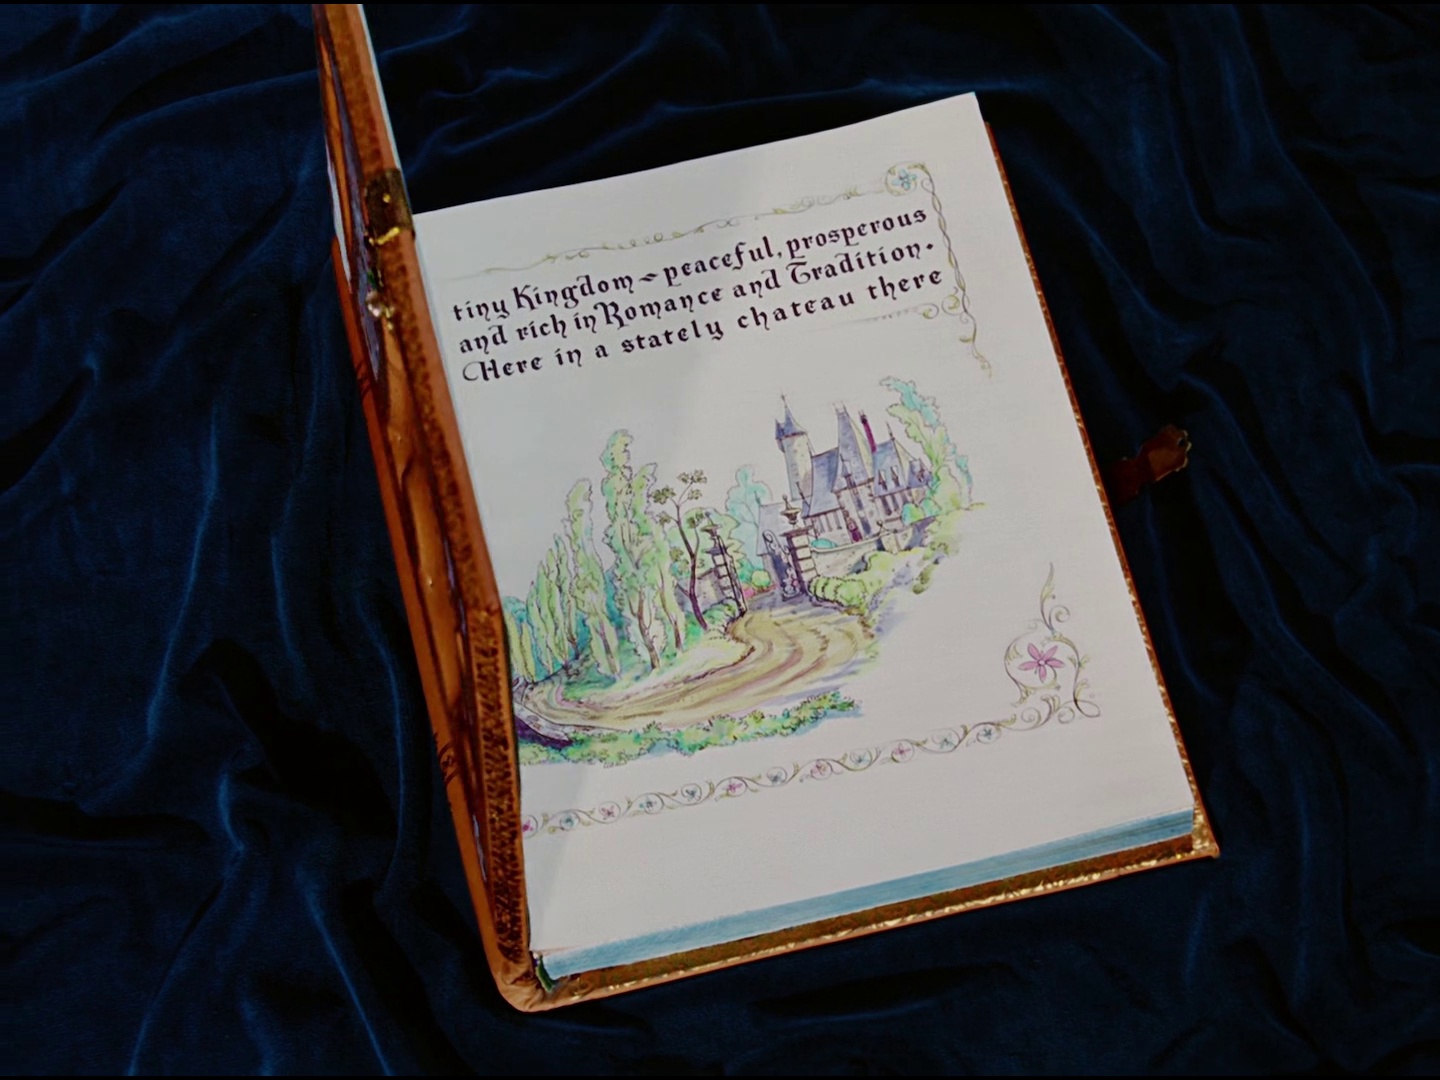 tiny Kingdom ~ peaceful, prosperous
and rich in Romance and Tradition.
Here in a stately chateau there